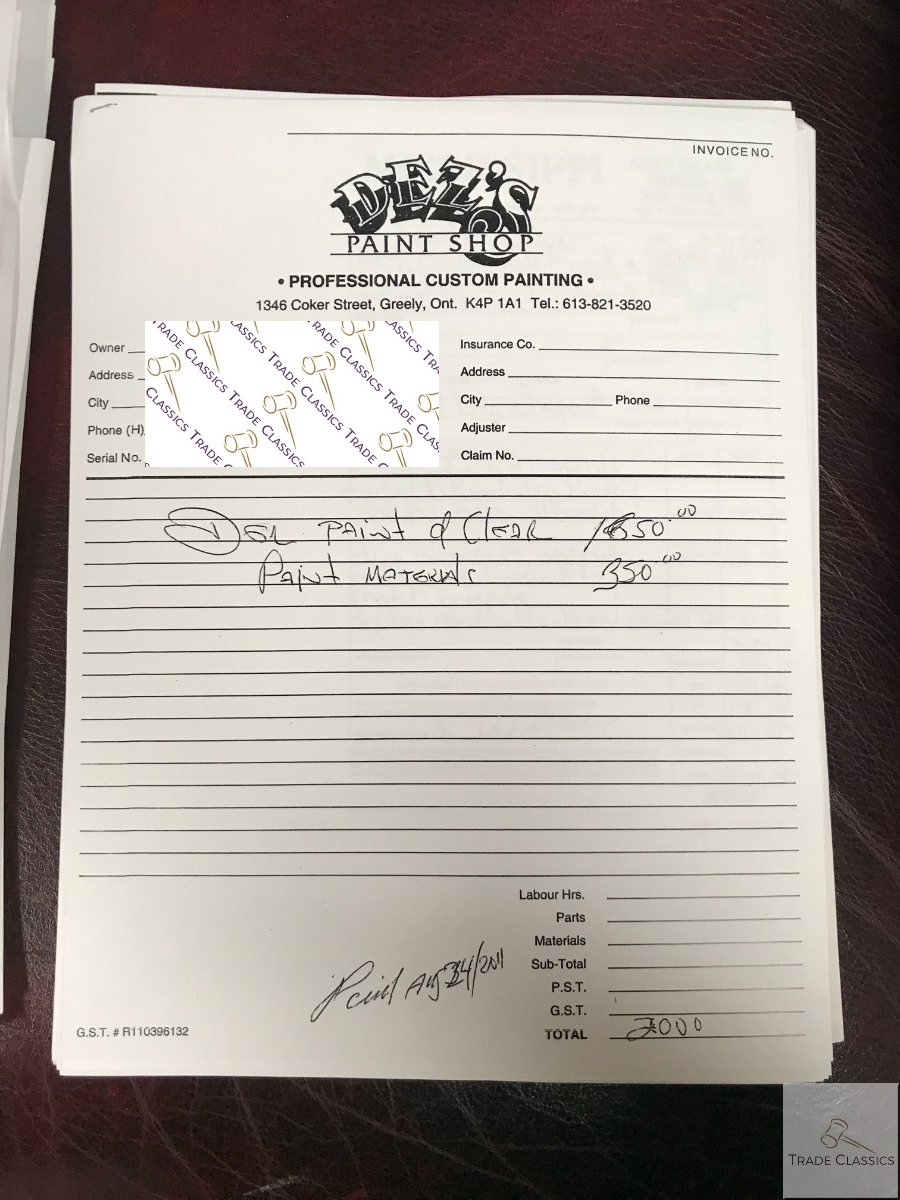 INVOICE NO.
DEZ'S
PAINT SHOP
• PROFESSIONAL CUSTOM PAINTING •
1346 Coker Street, Greely, Ont. K4P 1A1 Tel.: 613-821-3520
Owner
Address
City
Phone (H)
Serial No.
Insurance Co.
Address
City Phone
Adjuster
Claim No.
TRADE CLASSICS TRADE CLASSICS TRADE CLASSICS
Paint & Clear 1650.00
Paint Materials 350.00
Labour Hrs.
Parts
Materials
Sub-Total
P.S.T.
G.S.T.
TOTAL 2000
Paid Aug /2011
G.S.T. # R110396132
TRADE CLASSICS